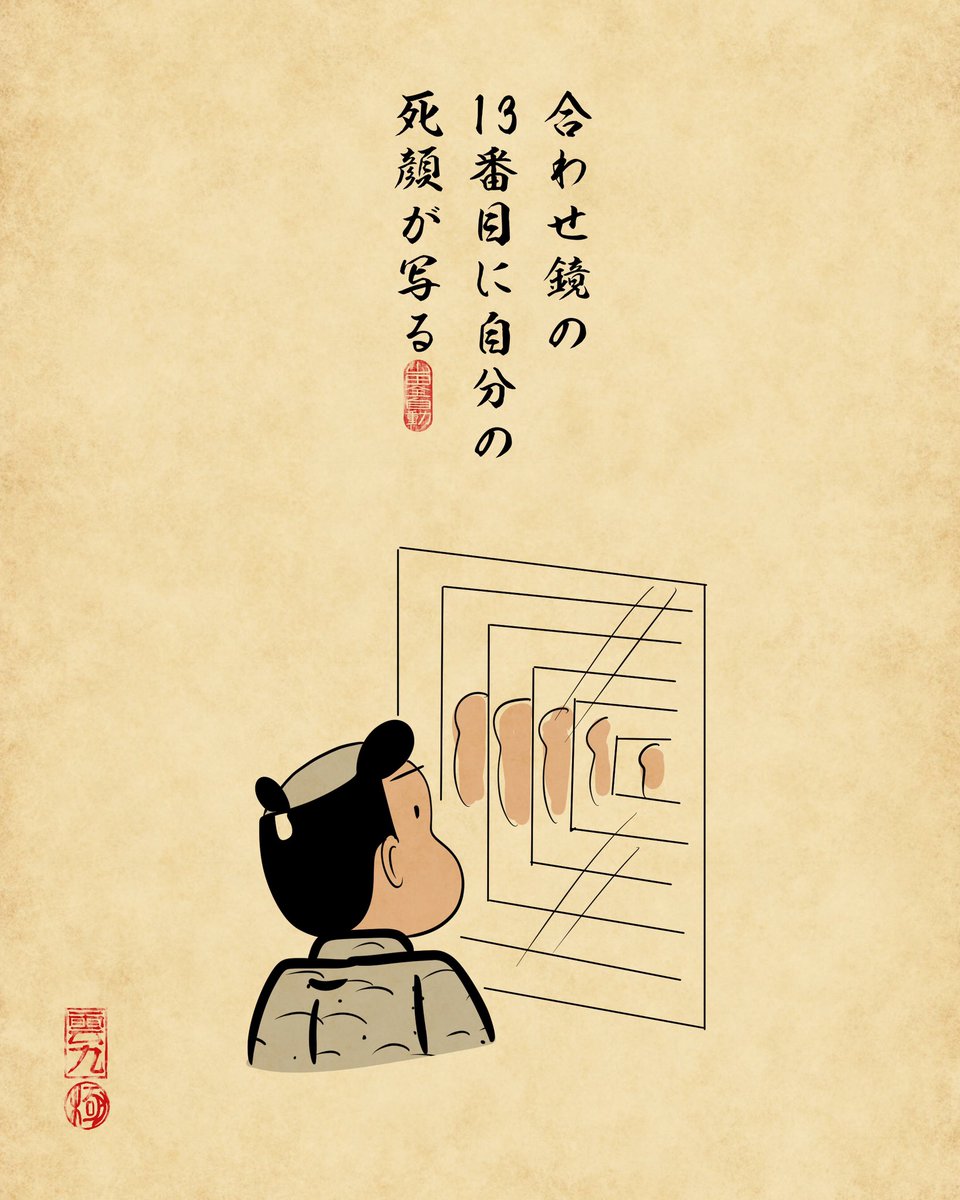 合わせ鏡の
13番目に自分の
死顔が写る